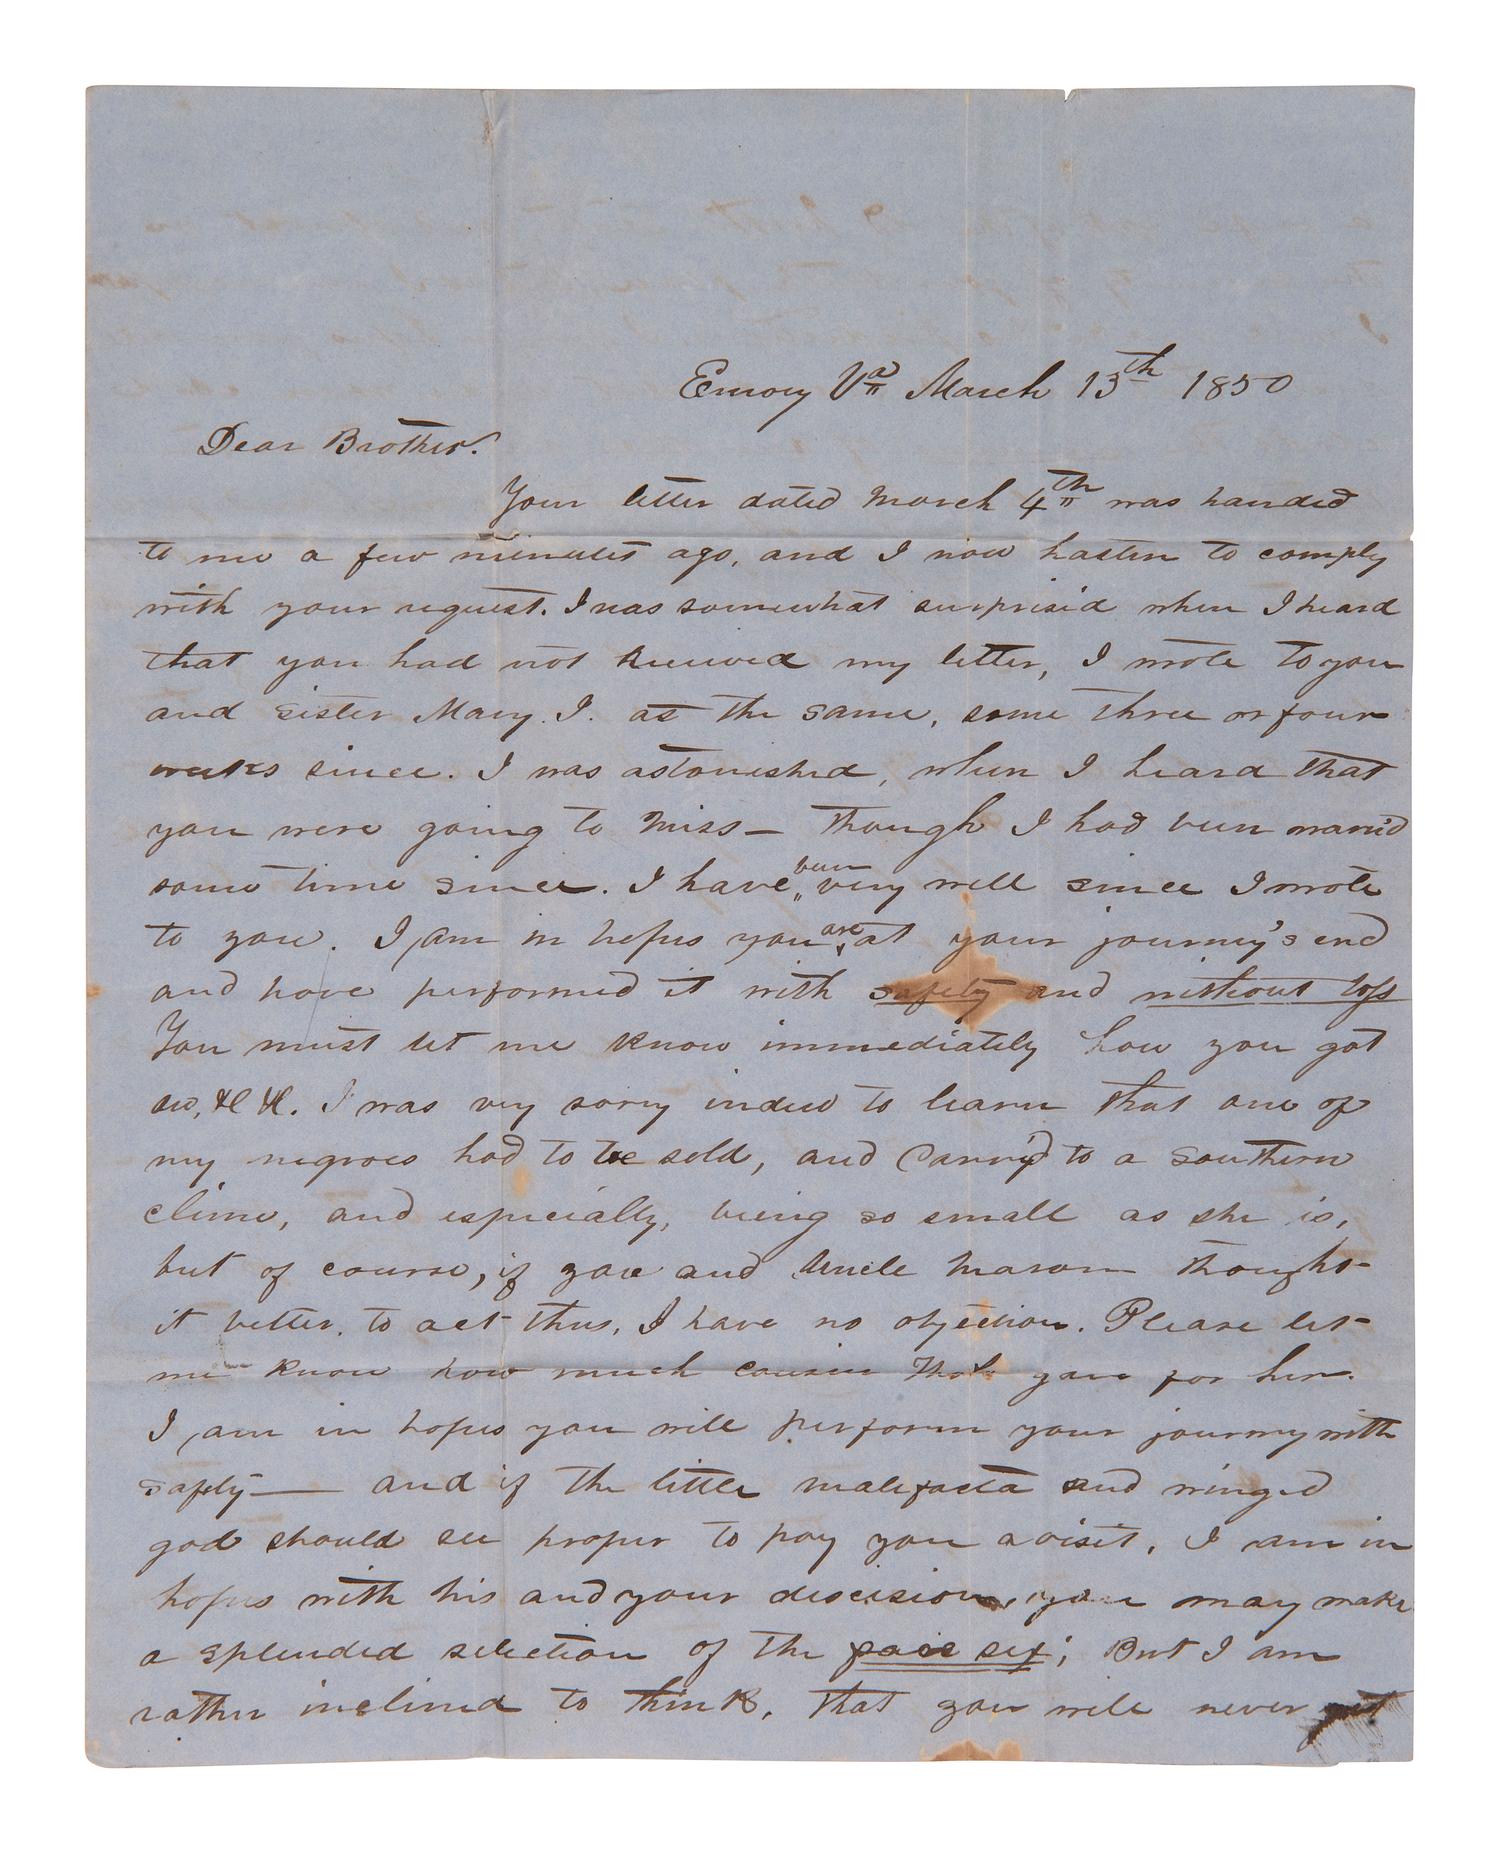 Emory Va March 13th 1850
Dear Brother.
Your letter dated March 4th was handed
to me a few minutes ago, and I now hasten to comply
with your request. I was somewhat surprised when I heard
that you had not received my letter, I wrote to you
and sister Mary. J. at the same, some three or four
weeks since. I was astonished, when I heard that
you were going to Miss— though I had been
some time since. I have been very well since I wrote
to you. I am in hopes you are at your journey's end
and have performed it with safety and without loss
You must let me know immediately how you got
&c &c. I was very sorry indeed to learn that one of
my negroes had to be sold, and carry'd to a southern
clime, and especially, being so small as she is,
but of course, if you and Uncle Mason thought
it better to act thus, I have no objection. Please let
me know how much cousin Thos gave for her.
I am in hopes you will perform your journey with
safety— and if the little malefacta and winged
god should see proper to pay you a visit, I am in
hopes with his and your discision, you may make
a splendid selection of the fair sex; But I am
rather inclined to think, that you will never get